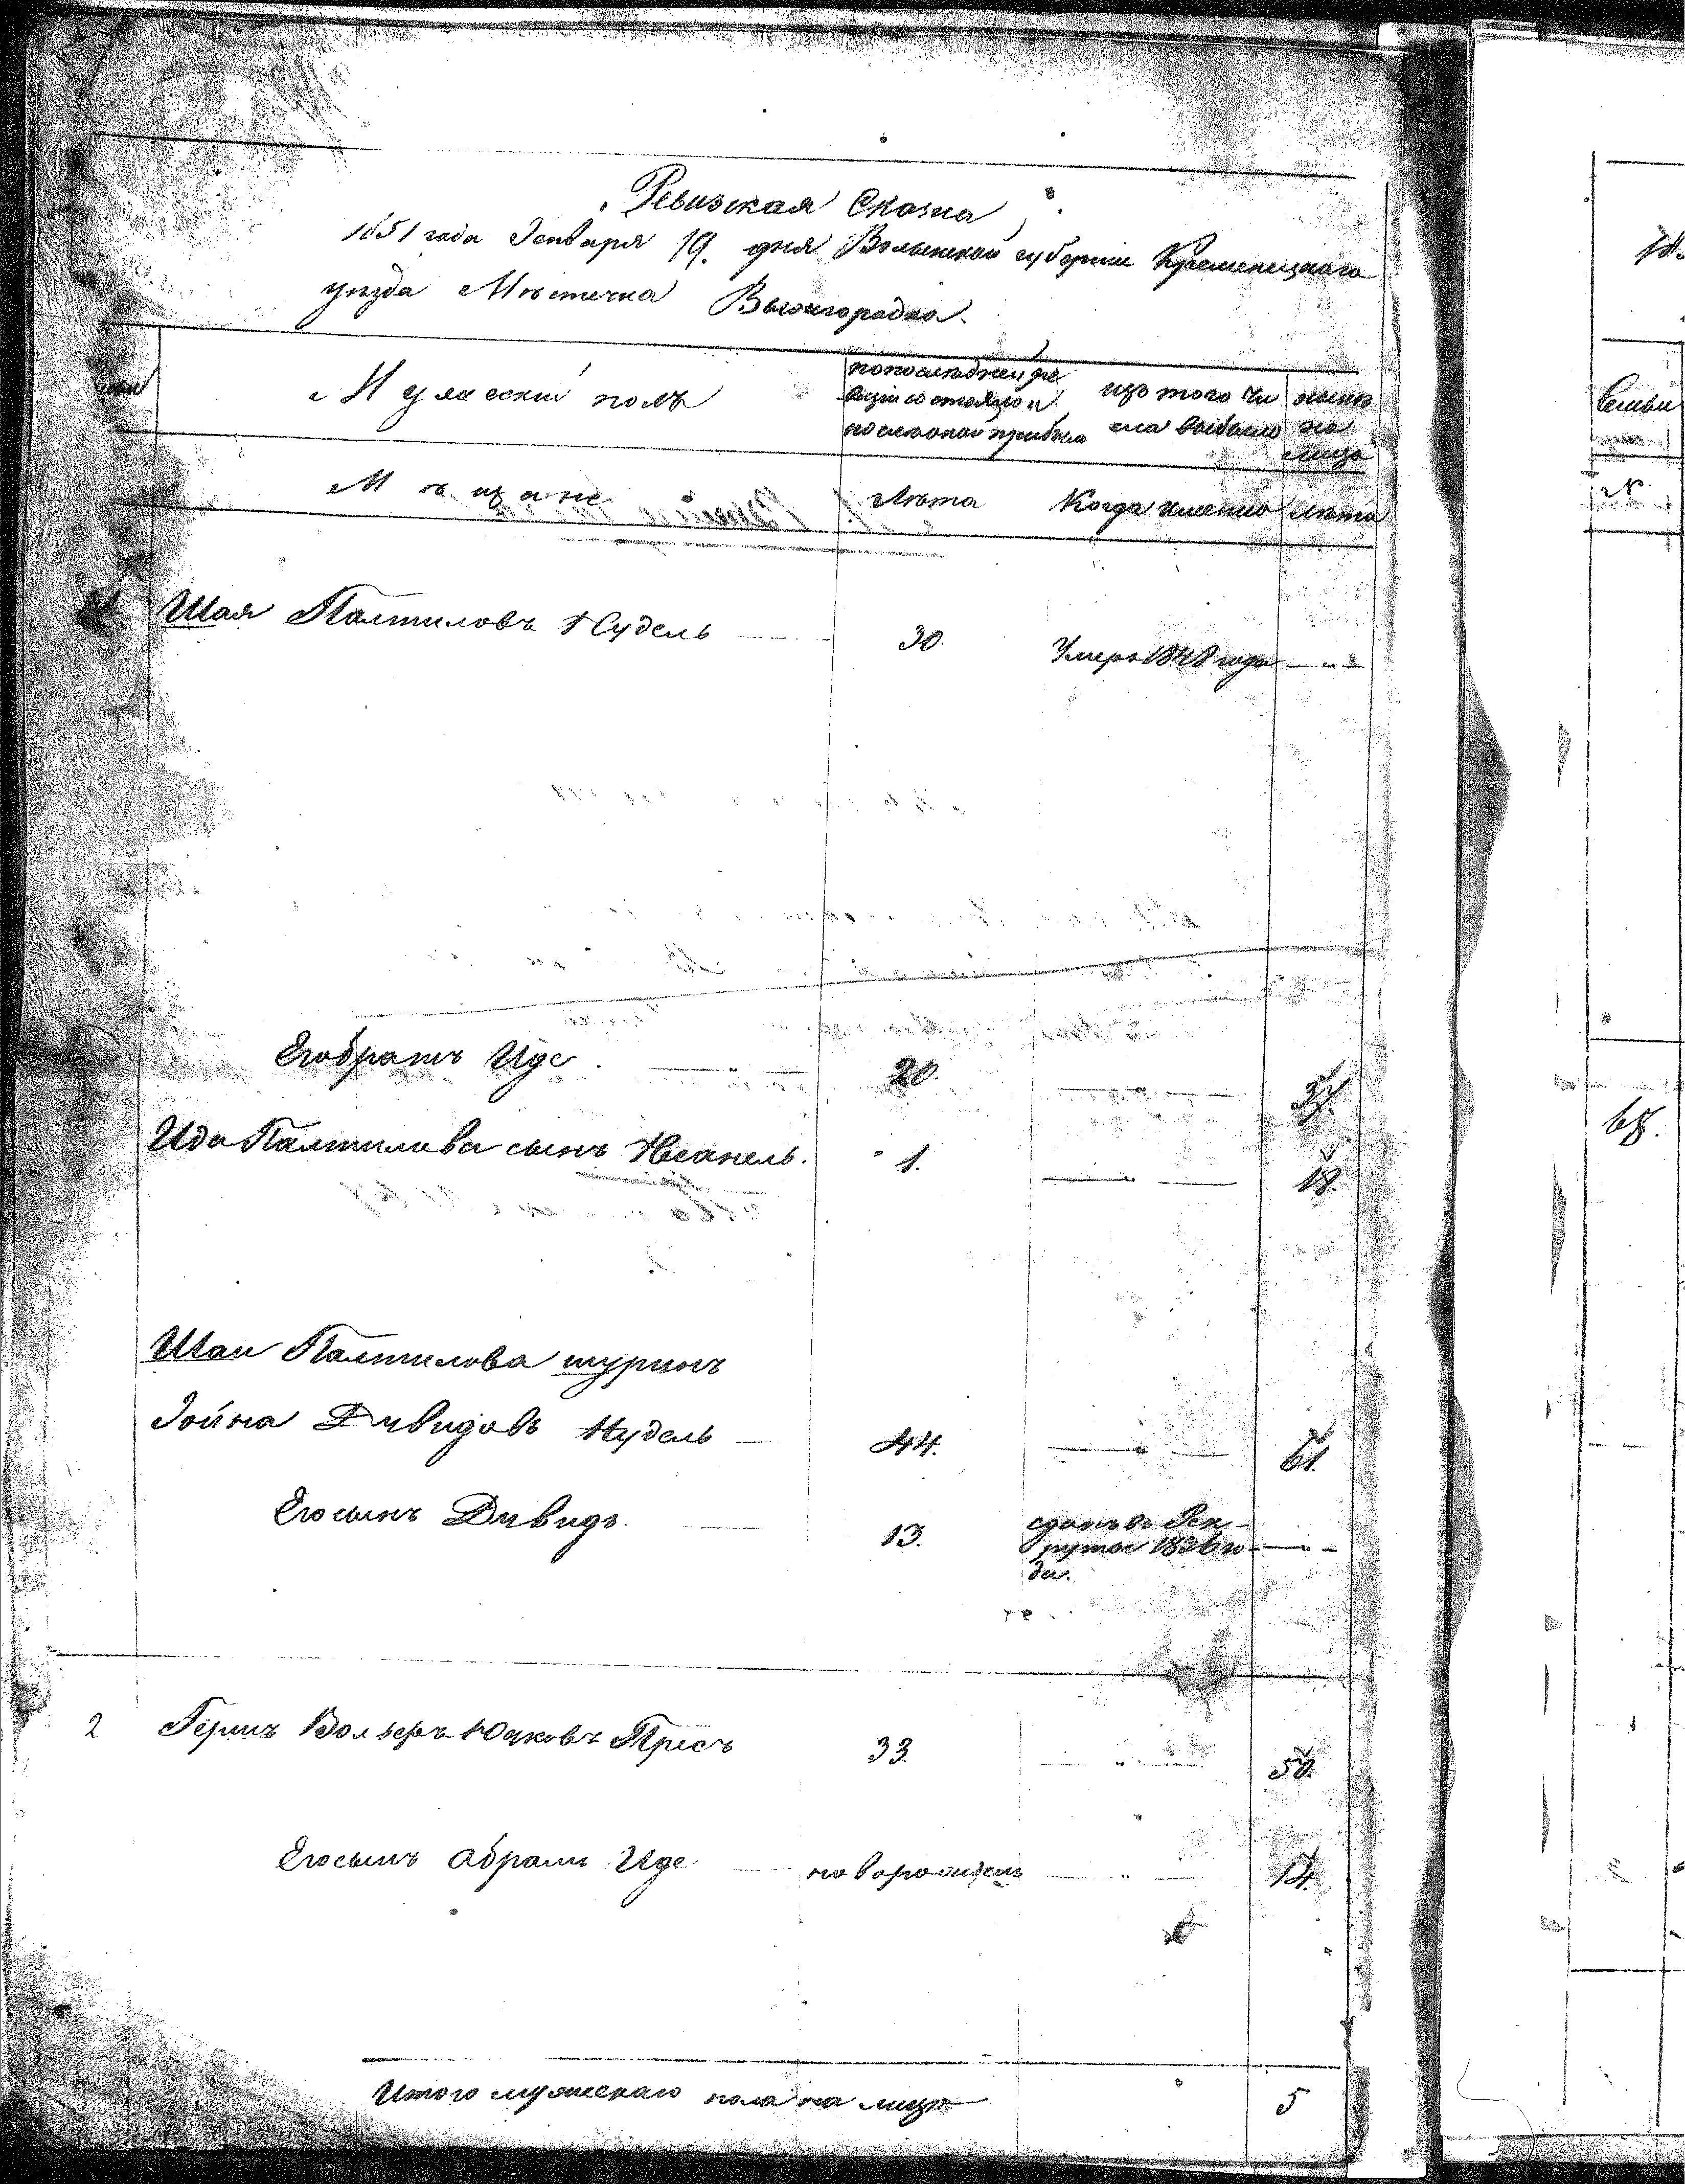 Ревизская Сказка
1851 года Генваря 19. дня Волынской губернии Кременецкаго
уѣзда Мѣстечка Вышгородка.
Мужескій полъ
по последней ре
визіи состояло и
после оной прибыло
изъ того чи
сла выбыло
нынѣ
на
лицо
Мѣщане
Лѣта
Когда именно
лѣта
Шая Палтиловъ Нудель 30. Умеръ 1848 года — " —
Его братъ Иде 20. — " — 37.
Ида Палтилова сынъ Несанель. 1. — " — 18.
Шаи Палтилова шуринъ
Іойна Дувидовъ Нудель 44. — " — 61.
Его сынъ Дувидъ. 13. сданъ въ Рек-
руты 1836 го- — " —
да.
2 Гершъ Вольфъ Юдковъ Пресъ 33. — " — 50.
Его сынъ Абрамъ Иде новорожден — " — 14.
Итого мужескаго пола на лицо 5
Семьи
18.
68.